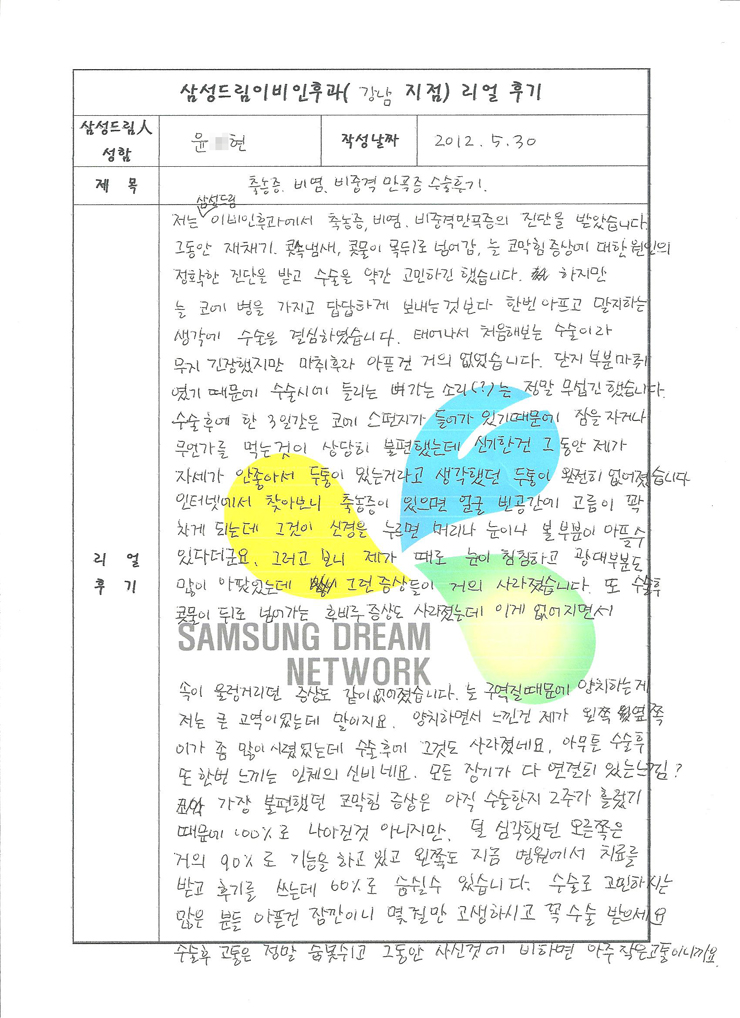 삼성드림이비인후과( 강남 지점) 리얼 후기
삼성드림人 성함
윤 현
작성날짜
2012. 5. 30
제 목
축농증. 비염. 비중격 만곡증 수술후기.
삼성드림
저는 이비인후과에서 축농증, 비염. 비중격만곡증의 진단을 받았습니다.
그동안 재채기. 콧속냄새, 콧물이 목뒤로 넘어감, 늘 코막힘증상에 대한 원인의
정확한 진단을 받고 수술을 약간 고민하긴 했습니다. 하지만
늘 코에 병을 가지고 답답하게 보내는것보다 한번 아프고 말지하는
생각에 수술을 결심하였습니다. 태어나서 처음해보는 수술이라
무지 긴장했지만 마취후라 아픈건 거의 없었습니다. 단지 부분마취
였기 때문에 수술시에 들리는 뼈가는 소리(?)는 정말 무섭긴 했습니다.
수술후에 한 3일간은 코에 스펀지가 들어가 있기때문에 잠을 자거나
무언가를 먹는것이 상당히 불편했는데 신기한건 그동안 제가
자세가 안좋아서 두통이 있는거라고 생각했던 두통이 완전히 없어졌습니다
인터넷에서 찾아보니 축농증이 있으면 얼굴 빈공간에 고름이 꽉
차게 되는데 그것이 신경을 누르면 머리나 눈이나 볼부분이 아플수
있다더군요. 그러고 보니 제가 때로 눈이 침침하고 광대부분도
많이 아팠었는데 그런증상들이 거의 사라졌습니다. 또 수술후
콧물이 뒤로 넘어가는 후비루 증상도 사라졌는데 이게 없어지면서
리 얼
후 기
SAMSUNG DREAM
NETWORK
속이 울렁거리던 증상도 같이없어졌습니다. 늘 구역질때문에 양치하는게
저는 큰 고역이었는데 말이지요. 양치하면서 느낀건 제가 왼쪽 윗쪽
이가 좀 많이 시렸었는데 수술후에 그것도 사라졌네요, 아무튼 수술후
또 한번 느끼는 인체의 신비네요. 모든 장기가 다 연결되 있는느낌?
가장 불편했던 코막힘 증상은 아직 수술한지 2주가 흘렀기
때문에 100%로 나아진것 아니지만, 덜 심각했던 오른쪽은
거의 90%로 기능을 하고 있고 왼쪽도 지금 병원에서 치료를
받고 후기를 쓰는데 60%로 숨쉴수 있습니다. 수술로 고민하시는
많은 분들 아픈건 잠깐이니 몇일만 고생하시고 꼭 수술 받으세요
수술후 고통은 정말 숨못쉬고 그동안 사신것에 비하면 아주 작은고통이니까요